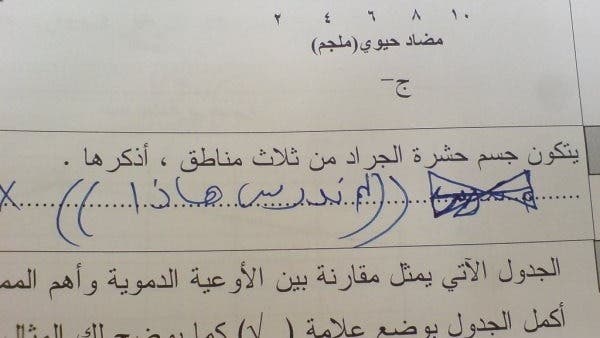 ٢ ٤ ٦ ٨ ١٠
مضاد حيوي(ملجم)
ج-
يتكون جسم حشرة الجراد من ثلاث مناطق ، أذكرها .
((لم ندرس هاذا)) X
الجدول الآتي يمثل مقارنة بين الأوعية الدموية وأهم
أكمل الجدول بوضع علامة ( √ ) كما يوضح لك المثال